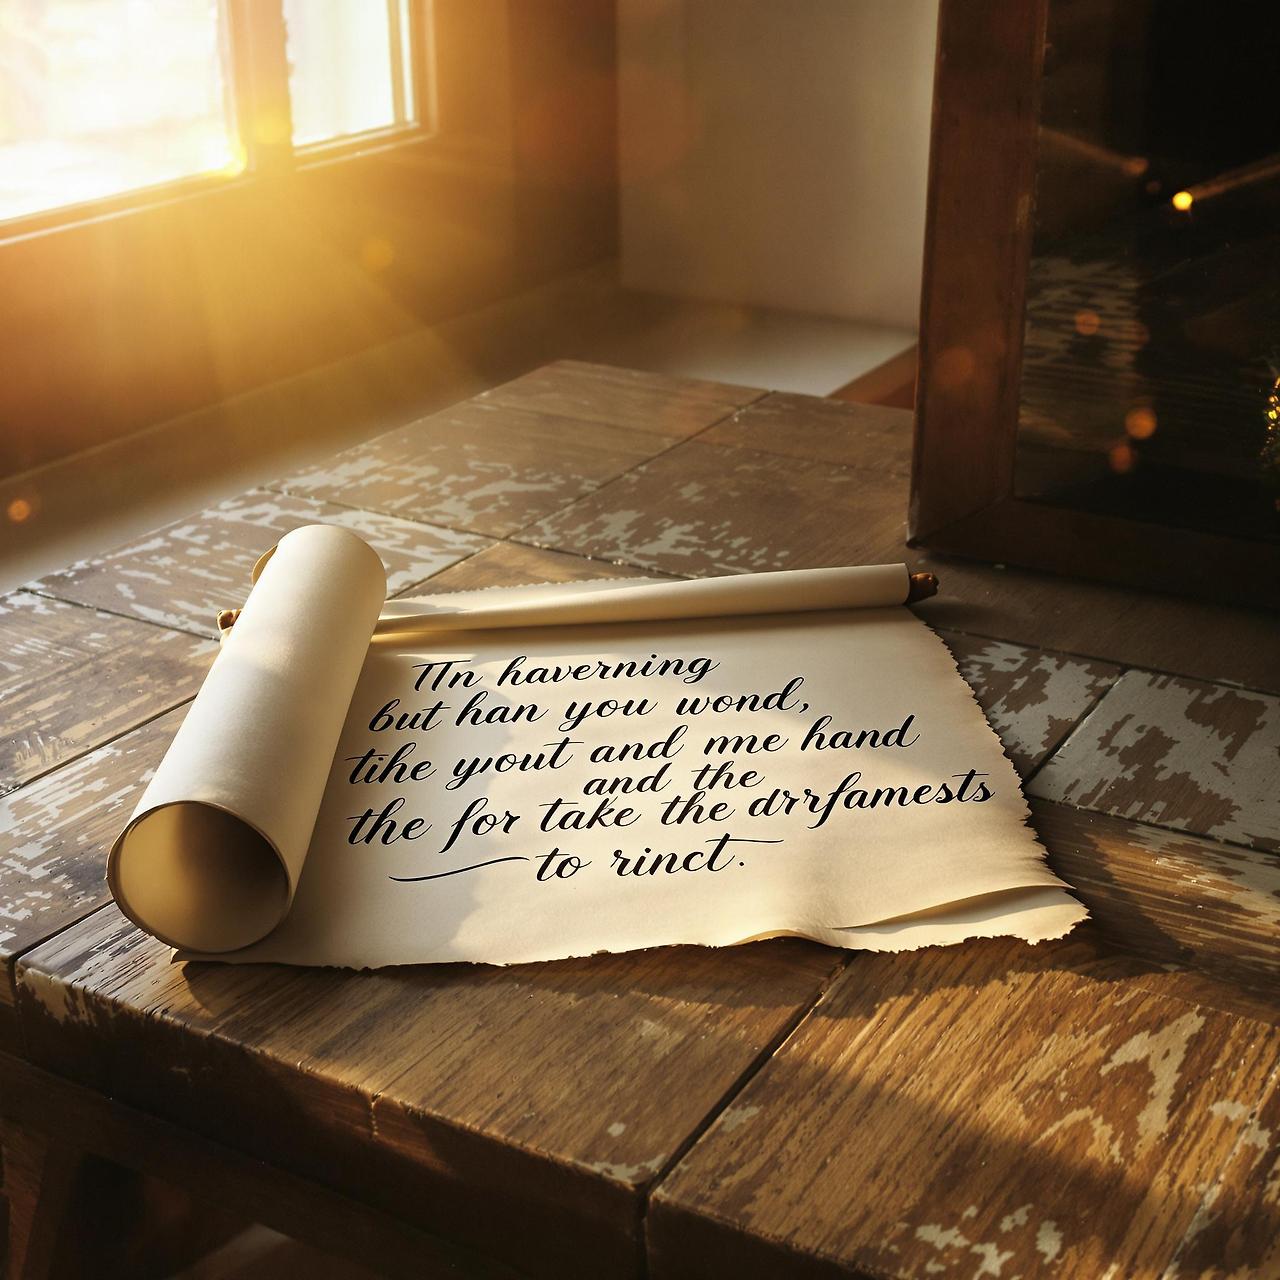 In haverning
but han you wond,
tihe yout and mne hand
and the
the for take the drrfamests
to rinct.